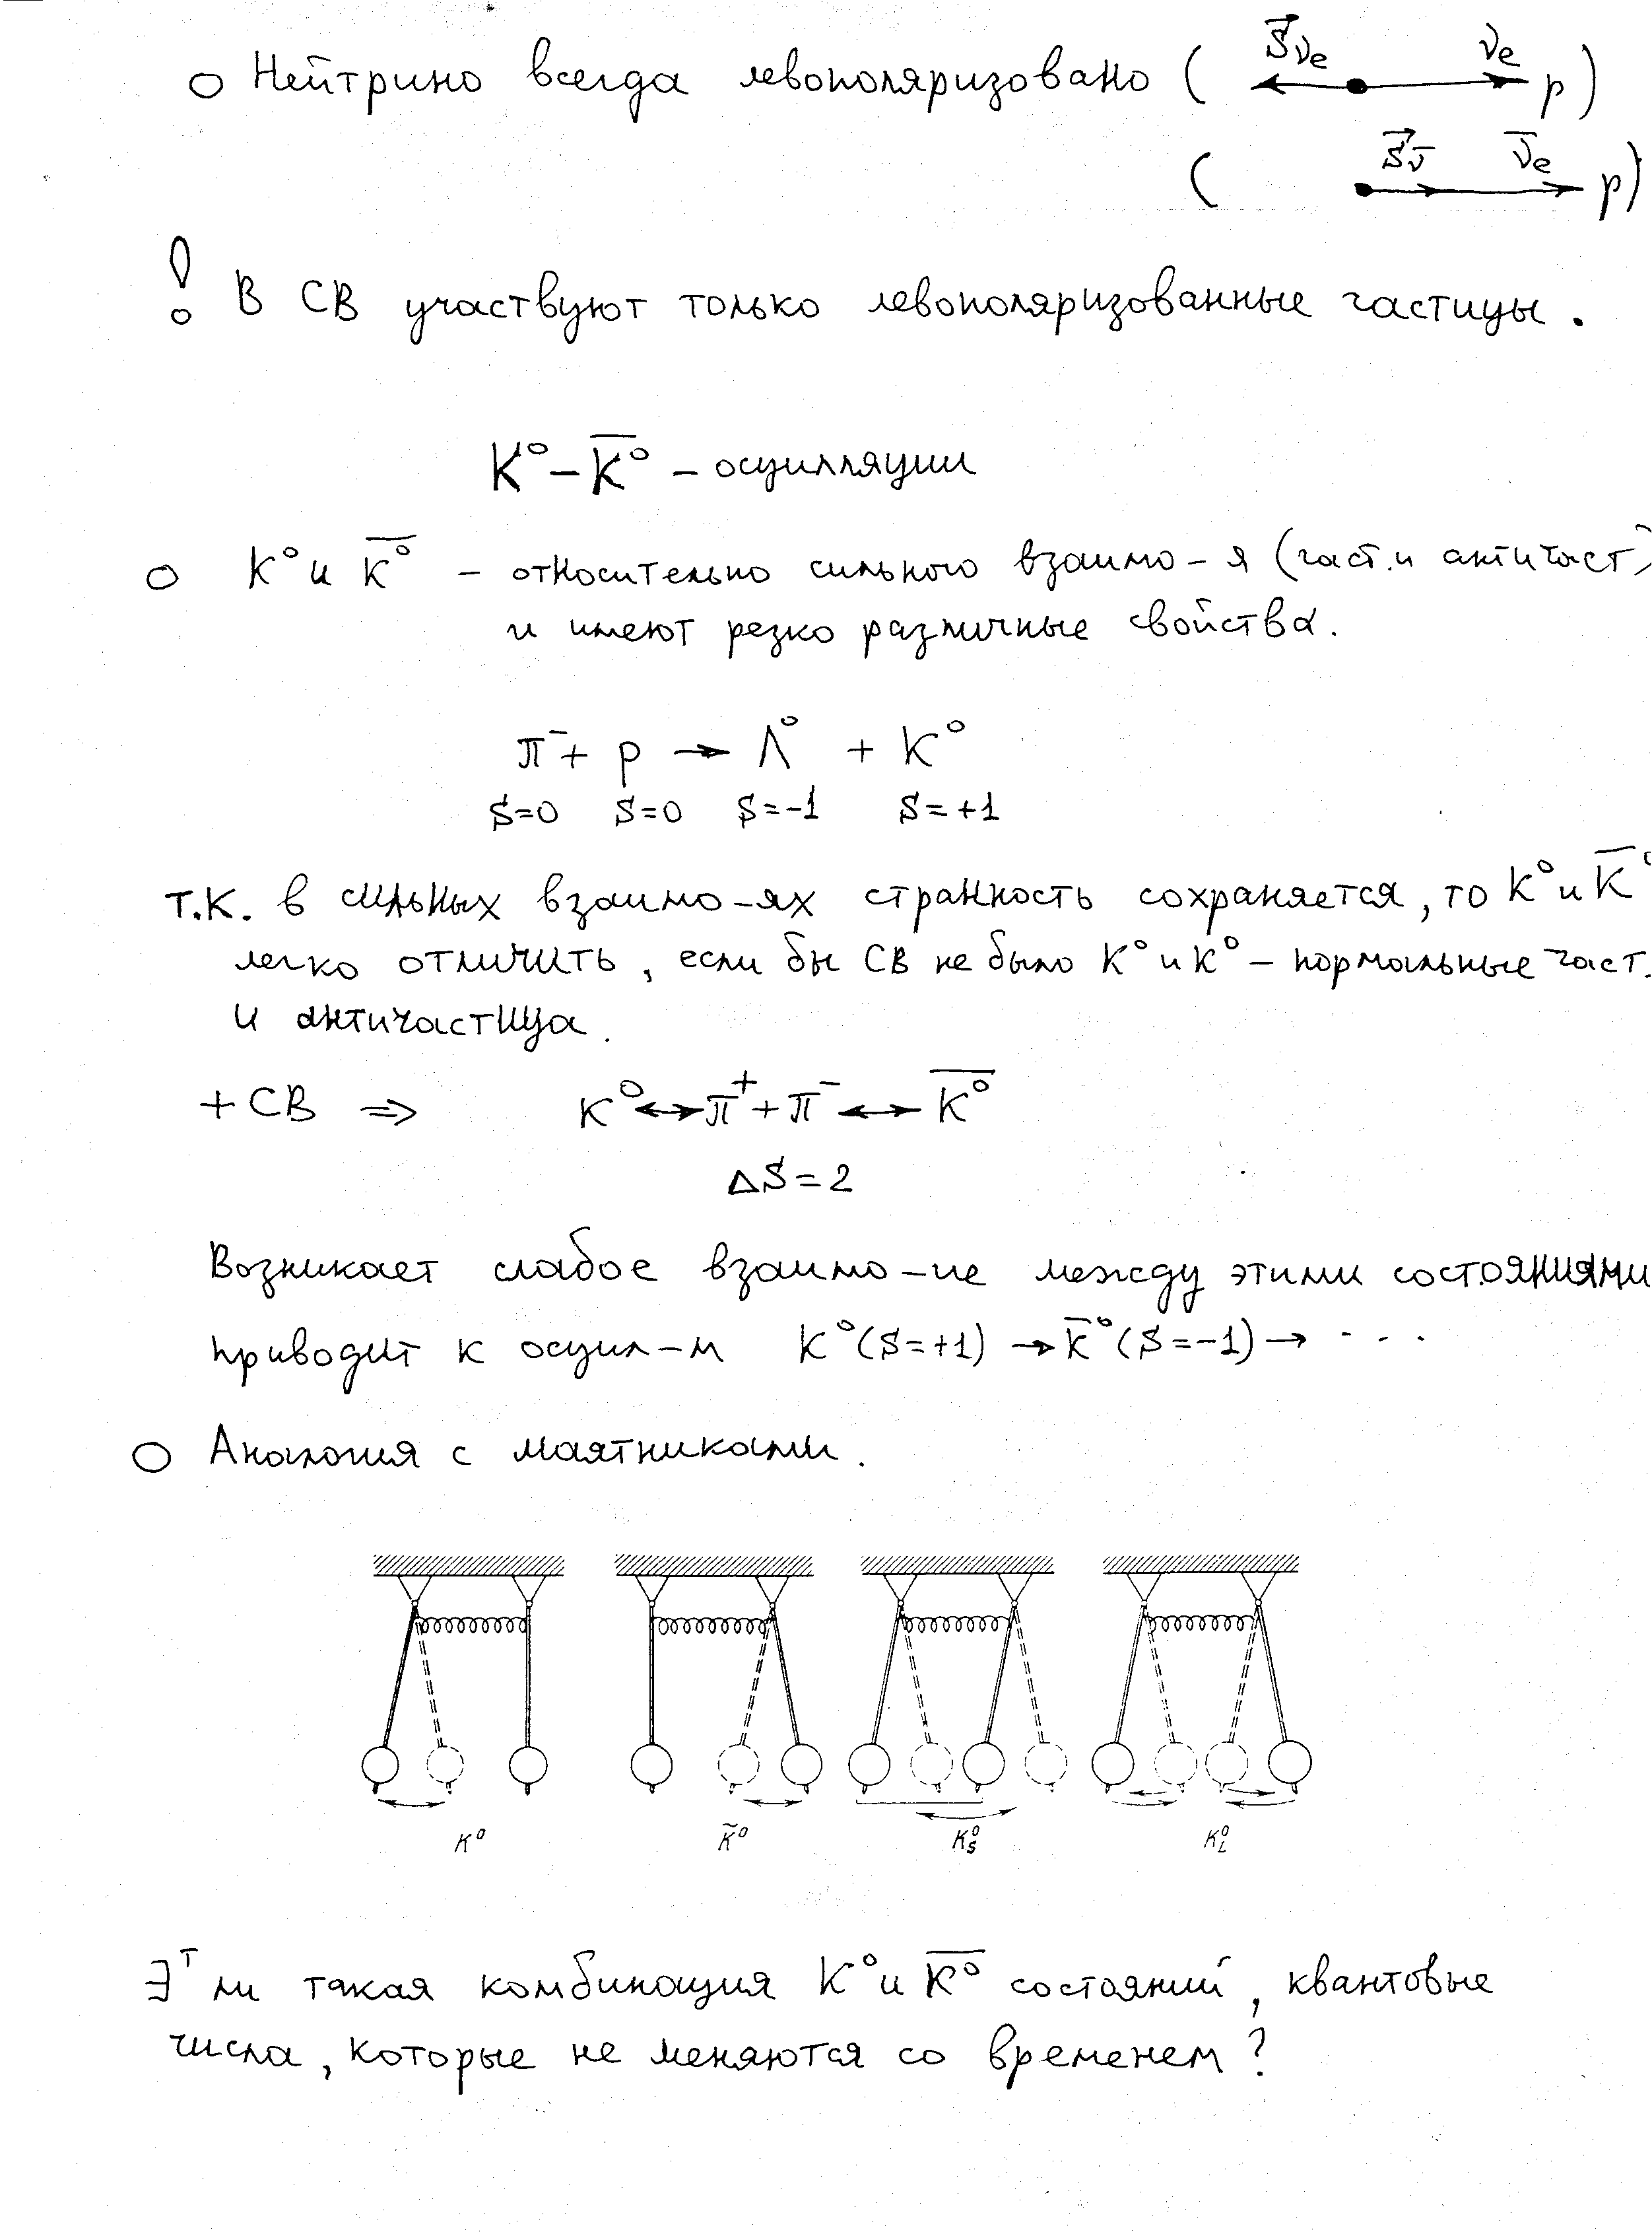 ○ Нейтрино всегда левополяризовано ( S⃗νe νe p )
( S⃗ν̄ ν̄e p )
! В СВ участвуют только левополяризованные частицы.
K⁰ – K̅⁰ – осцилляции
○ K⁰ и K̅⁰ – относительно сильного взаимо-я (част. и античаст)
и имеют резко различные свойства.
π⁻ + p → Λ⁰ + K⁰
S=0 S=0 S=-1 S=+1
Т.К. в сильных взаимо-ях странность сохраняется, то K⁰ и K̅⁰
легко отличить, если бы СВ не было K⁰ и K⁰ – нормальные част.
и античастица.
+ СВ ⇒ K⁰ ↔ π⁺ + π⁻ ↔ K̅⁰
ΔS = 2
Возникает слабое взаимо-ие между этими состояниями
приводит к осцил-м K⁰(S=+1) → K̅⁰(S=-1) → ...
○ Аналогия с маятниками.
K⁰ K̃⁰ K⁰S K⁰L
∃ᵀ ли такая комбинация K⁰ и K̅⁰ состояний, квантовые
числа, которые не меняются со временем?